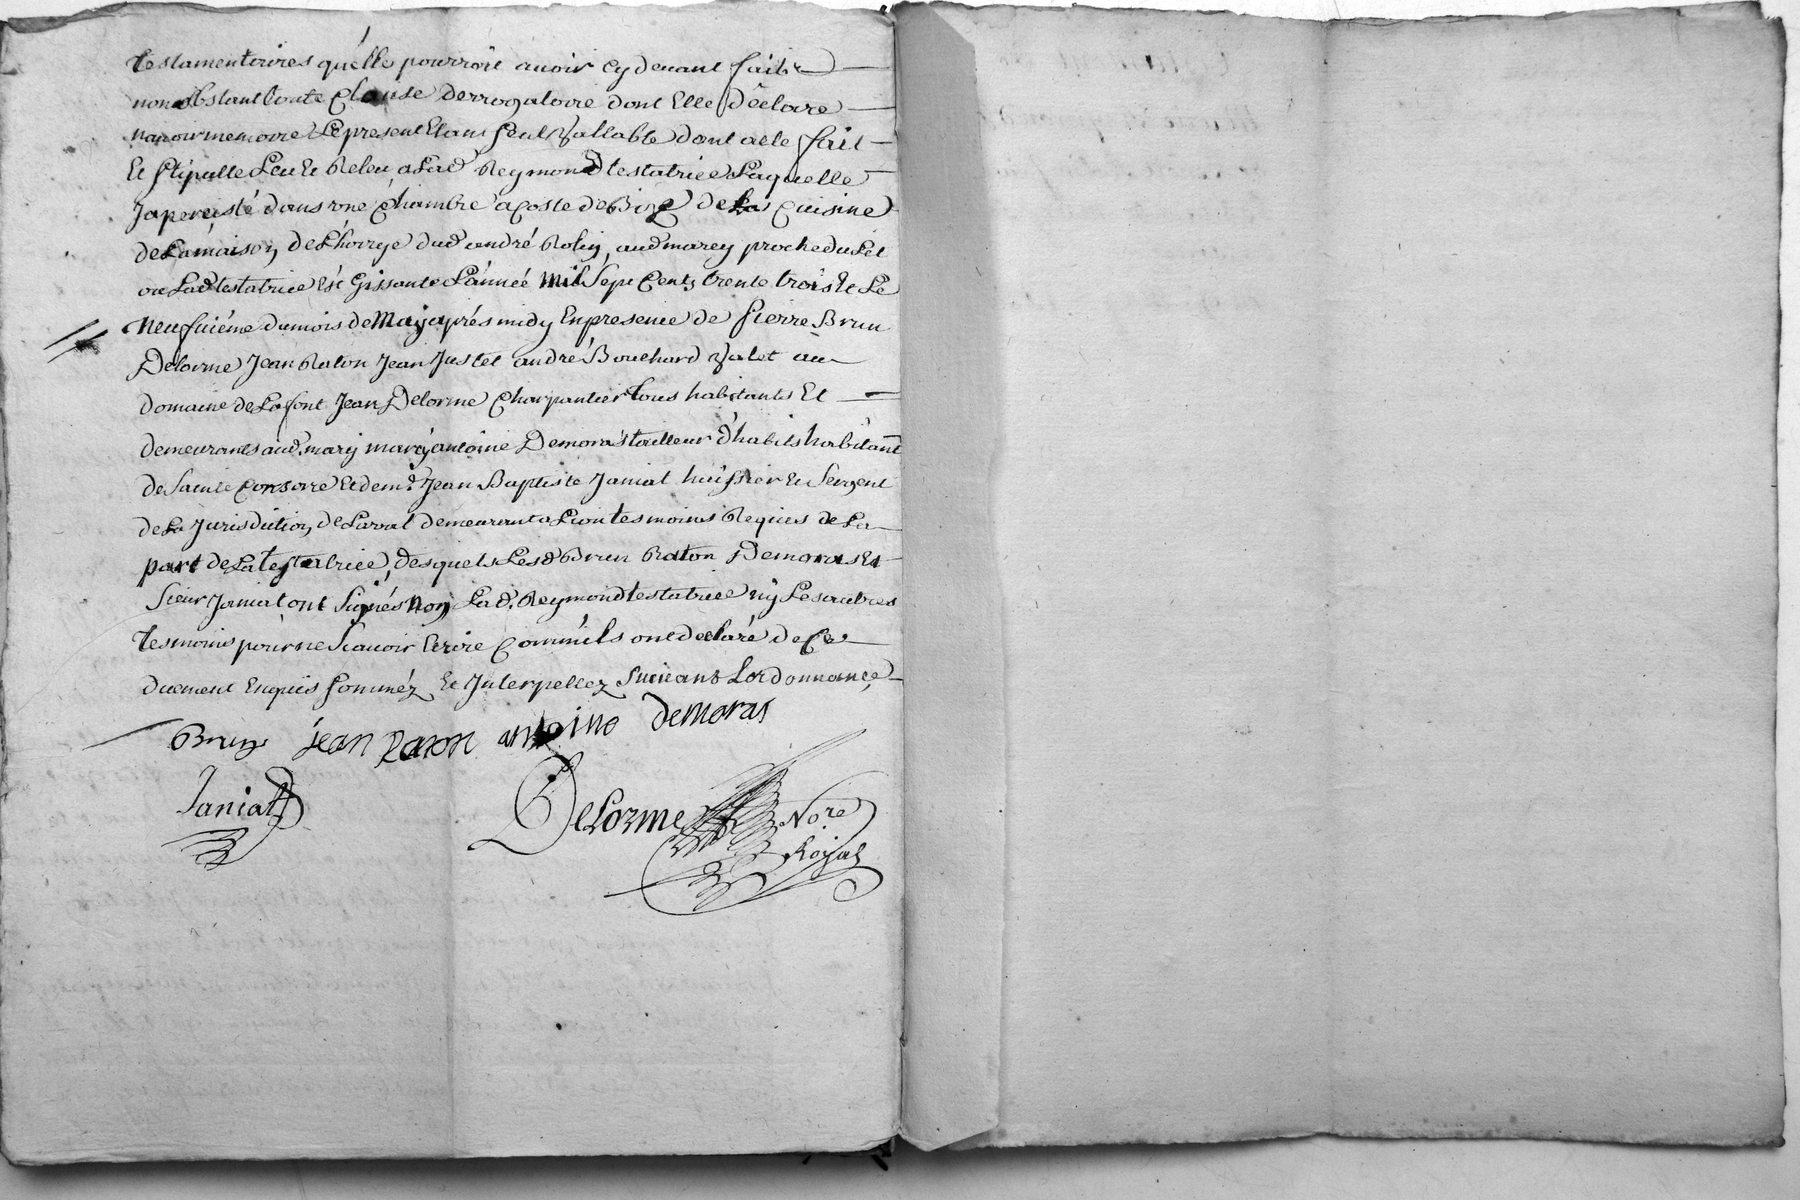 testamentaires qu'elle pourroit avoir cy devant faits
nonobstant toute Clause derrogatoire dont Elle déclare
n'avoir memoire Le present Etant seul Vallable dont acte fait
Et stipullé Leu Et Releu a Lad Reymond testatrice Laquelle
y a percisté dans vne Chambre a Coste de Bize de La Cuisine
de La maison de L'horrye dud andré Rolin, aud marcy proche du Lit
ou Lad testatrice Est Gissante L'année mil Sept Cents trente trois Et Le
neufuiéme du mois de May aprés midy En presence de Pierre Brun
Delorme Jean Raton Jean Justet andré Bouchard Valet au
domaine de La font Jean Delorme Charpantier tous habitants Et
demeurants aud. marcy antoine Demoras tailleur d'habits habitant
de Sainte Consorce Et de m.e Jean Baptiste Janiat huissier Et Sergent
de La Jurisdiction de Laval demeurant a Lion tesmoins Requis de La
part de La testatrice, desquels Lesd Brun Raton Demoras Et
Sieur Janiat ont Signés non Lad. Reymond testatrice ny Les autres
tesmoins pour ne Scauoir Ecrire Comm'ils ont declaré de Ce
duement Enquis sommez Et Interpellez Suiuant Lordonnance
Brun jean Raton antoine demoras
Janiat
DeLorme Nore
Royal